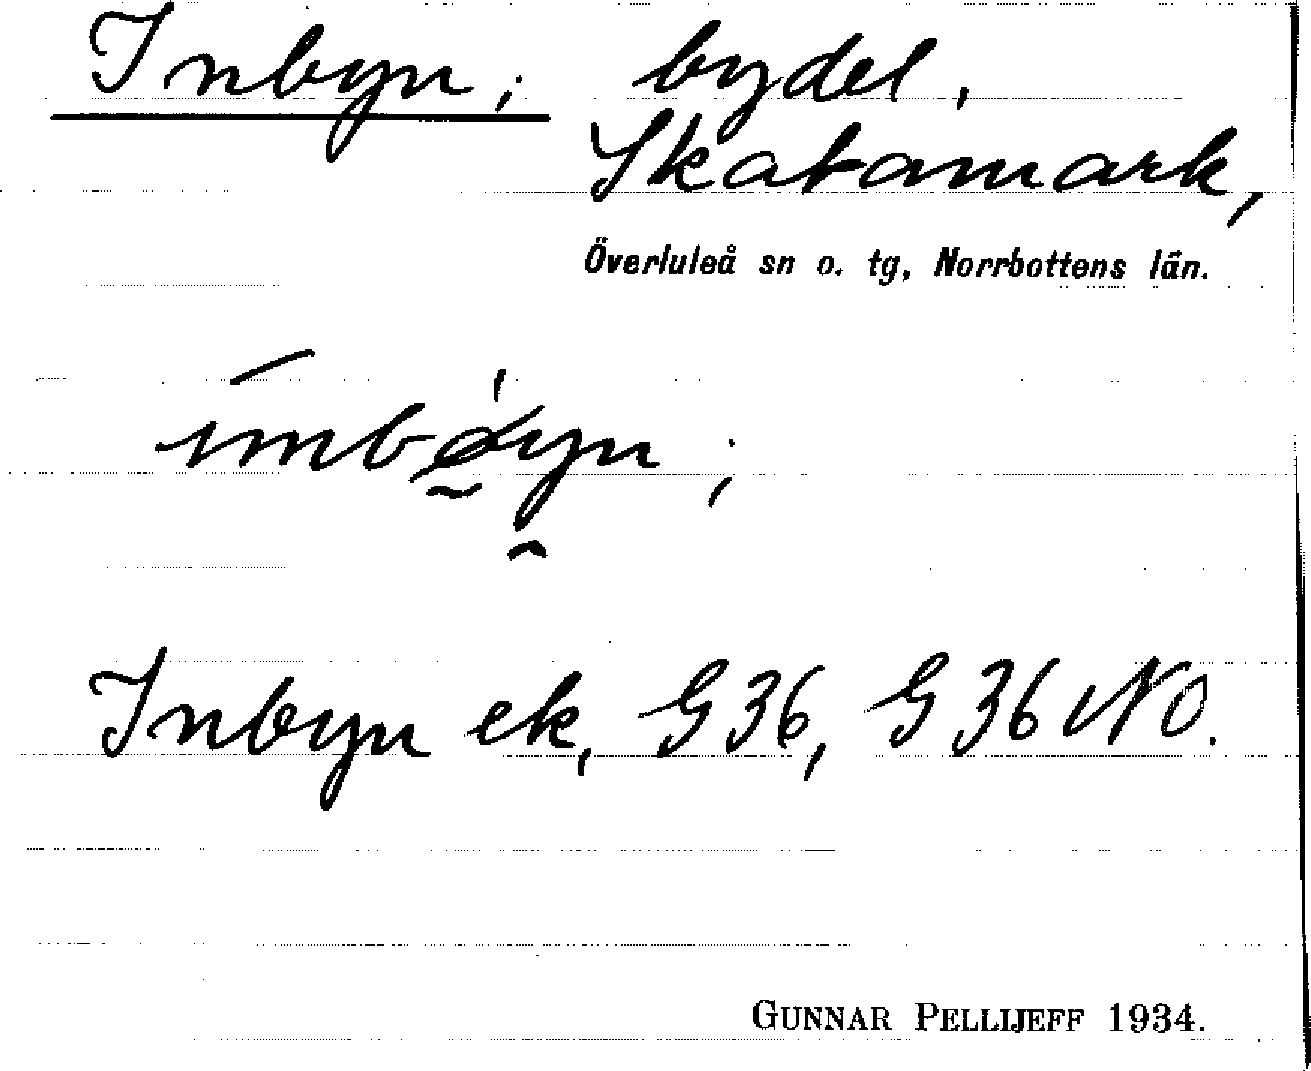 Inbyn; bydel,
Skatamark,
Överluleå sn o. tg, Norrbottens län.
ı́mbøyn;
Inbyn ek, G36, G 36 NO.
GUNNAR PELLIJEFF 1934.